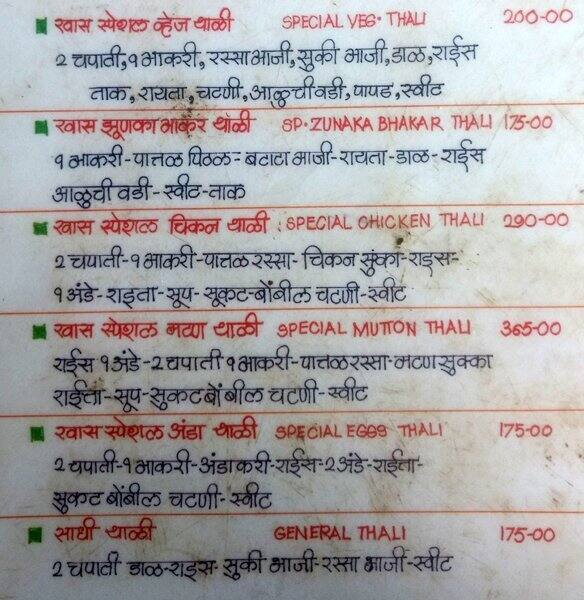 खास स्पेशल व्हेज थाळी SPECIAL VEG. THALI 200-00
2 चपाती, १ भाकरी, रस्सा भाजी, सुकी भाजी, डाळ, राईस
ताक, रायता, चटणी, आळुची वडी, पापड, स्वीट
खास झूणका भाकर थाळी SP. ZUNAKA BHAKAR THALI 175-00
१ भाकरी - पात्तळ पिठल - बटाटा भाजी - रायता - डाळ - राईस
आळुची वडी - स्वीट - ताक
खास स्पेशल चिकन थाळी : SPECIAL CHICKEN THALI 290-00
2 चपाती - १ भाकरी - पात्तळ रस्सा - चिकन सुंका - राइस -
१ अंडे - राइता - सूप - सूकट - बोंबील चटणी - स्वीट
खास स्पेशल मटण थाळी SPECIAL MUTTON THALI 365-00
राईस १ अंडे - 2 चपाती १ भाकरी - पात्तळ रस्सा - मटण सुक्का
राईत्ता - सूप - सुकट बोंबील चटणी - स्वीट
खास स्पेशल अंडा थाळी SPECIAL EGGS THALI 175-00
2 चपाती - १ भाकरी - अंडा करी - राईस - 2 अंडे - राईता -
सुकट बोंबील चटणी - स्वीट
साधी थाळी GENERAL THALI 175-00
2 चपाती डाळ - राइस - सुकी भाजी - रस्सा भाजी - स्वीट